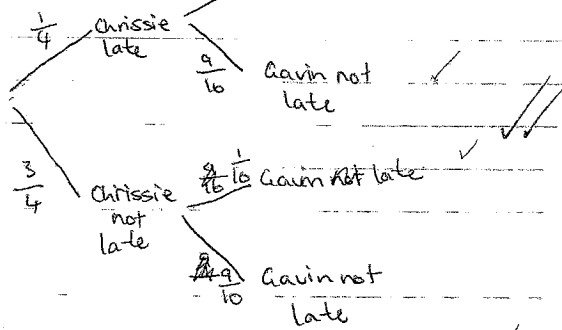 1/4
Chrissie
late
9/10
Gavin not
late
3/4
Chrissie
not
late
1/10
Gavin late
9/10
Gavin not
late